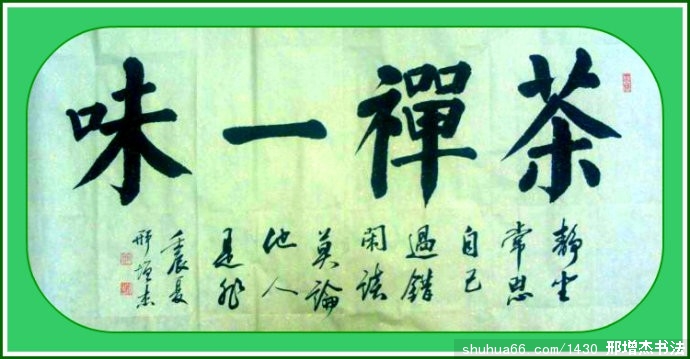 茶禪一味
靜坐
常思
自己
過錯
閑談
莫論
他人
是非
壬辰夏
邢增杰
shuhua66.com/1430 邢增杰书法